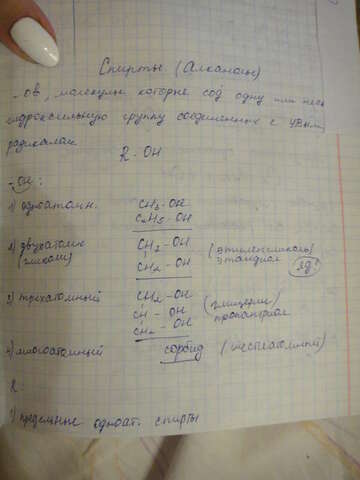 Спирты (Алканолы)
- ОВ, молекулы которые сод одну или неск
гидроксильную группу соединенных с УВным
радикалом
R - OH
- OH :
1) одноатомн. CH3 - OH
C2H5 - OH
2) двухатомн CH2 - OH (этиленгликоль)
(гликоли) CH2 - OH этандиол яд!
3) трехатомный CH2 - OH (глицерин)
CH - OH пропантриол
CH2 - OH
4) многоатомный сорбид (шестиатомный)
R :
1) предельные одноат. спирты